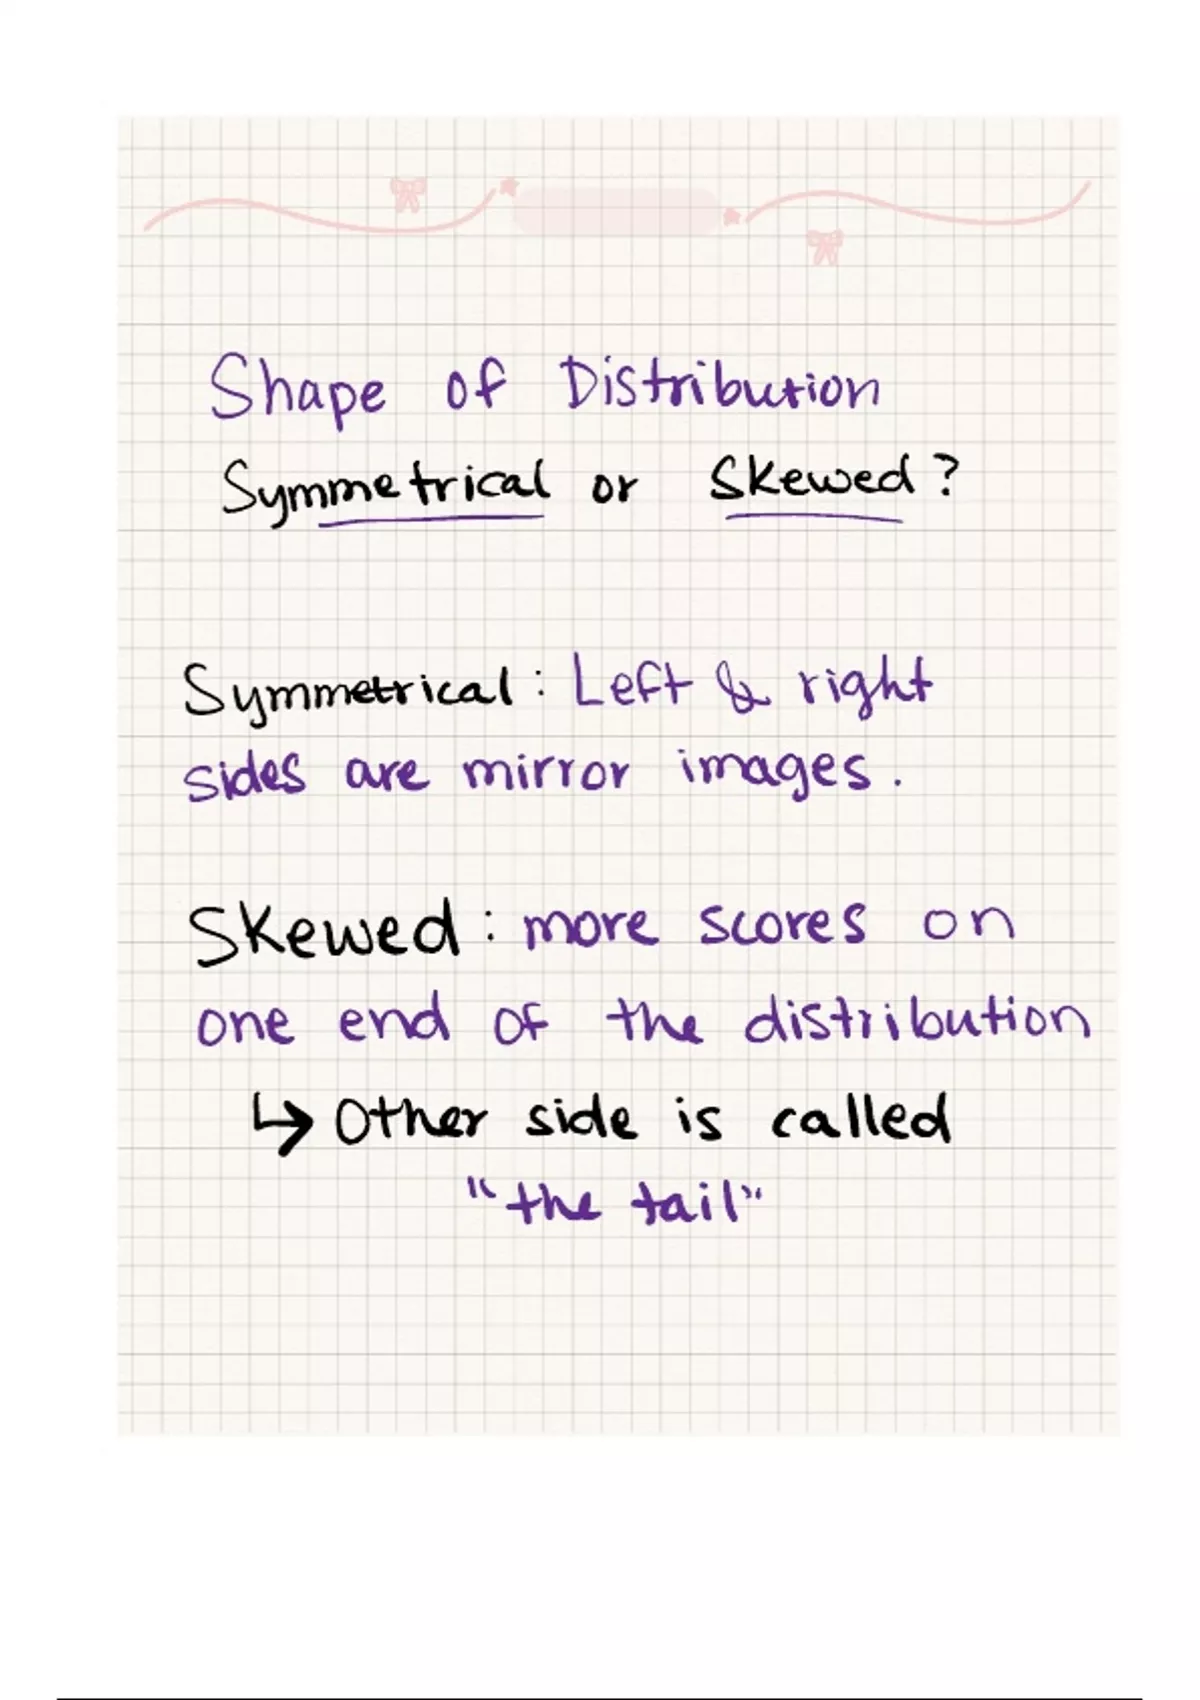 Shape of Distribution
Symmetrical or Skewed?
Symmetrical: Left & right
sides are mirror images.
Skewed: more scores on
one end of the distribution
↳ Other side is called
"the tail"